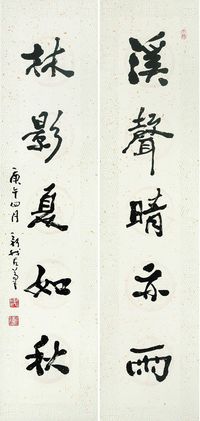 溪聲晴亦雨
林影夏如秋
庚午四月